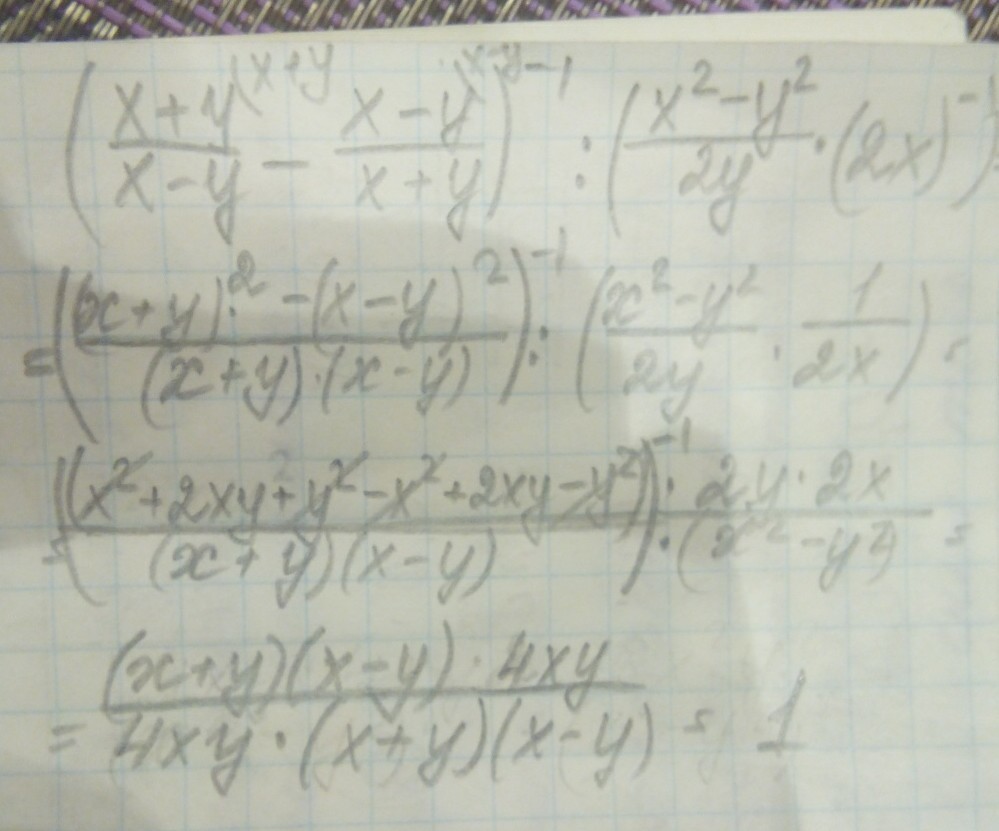 (\frac{x+y^{(x+y}}{x-y} - \frac{x-y^{(x-y}}{x+y})^{-1} : (\frac{x^2-y^2}{2y} \cdot (2x)^{-1}
= (\frac{(x+y)^2 - (x-y)^2}{(x+y) \cdot (x-y)})^{-1} : (\frac{x^2-y^2}{2y} \cdot \frac{1}{2x}) =
= (\frac{(x^2+2xy+y^2-x^2+2xy-y^2)}{(x+y)(x-y)})^{-1} \cdot \frac{2y \cdot 2x}{(x^2-y^2)} =
= \frac{(x+y)(x-y) \cdot 4xy}{4xy \cdot (x+y)(x-y)} = 1